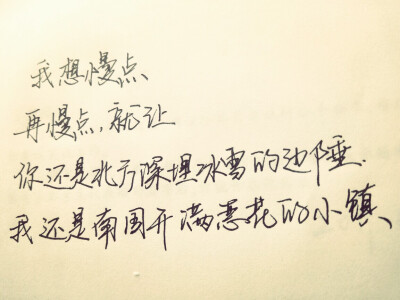 我想慢点
再慢点,就让
你还是北方深埋冰雪的边陲.
我还是南国开满葱花的小镇